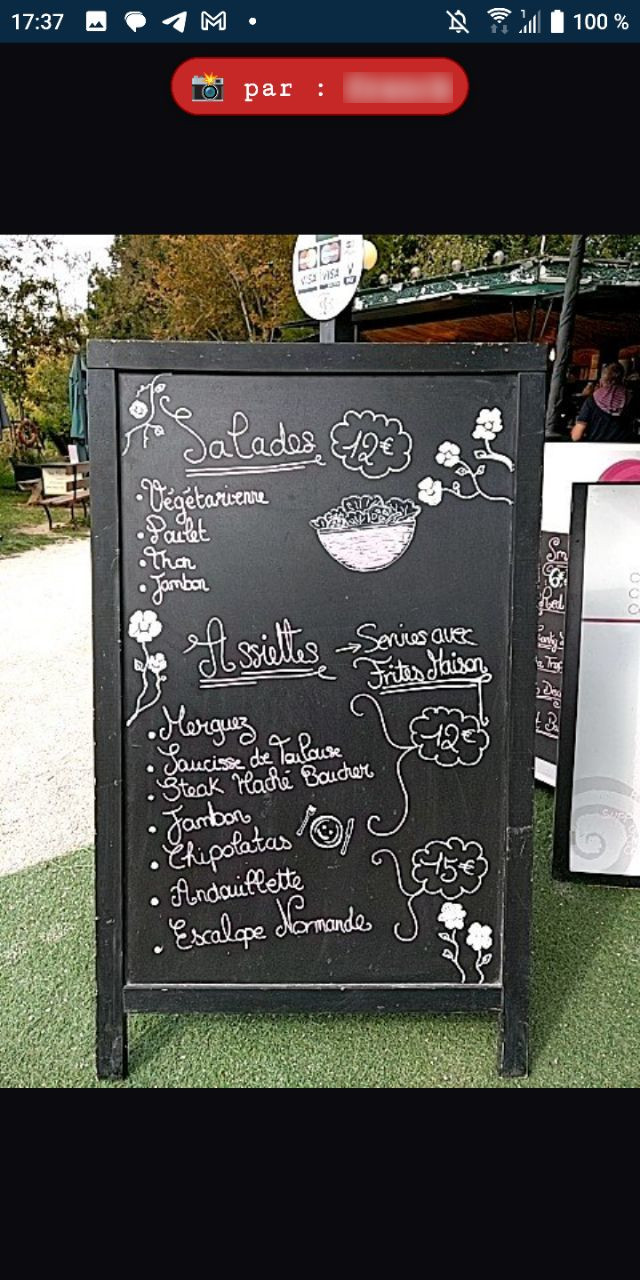 17:37
100 %
par :
VISA VISA
Salades 12€
• Végétarienne
• Poulet
• Thon
• Jambon
Assiettes → Servies avec
Frites Maison
• Merguez
12€
• Saucisse de Toulouse
• Steak Haché Boucher
• Jambon
• Chipolatas
15€
• Andouillette
• Escalope Normande
6€